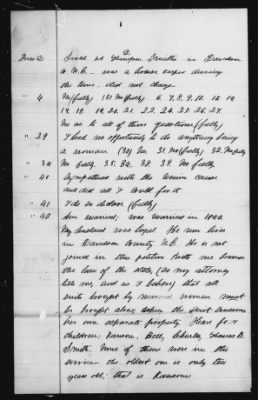 2
Lived at Thompson Smiths in Davidson
Co N.C. - was a house keeper during
the time. did not change.
" 4 No (fully) (2) No (fully) 6. 7. 8. 9. 10. 15. 19
No as to all of these questions (fully)
" 29 I had no opportunity to do anything being
a woman (30) No. 31. No (fully) 32. No fully
No fully 35. 38. 39. No fully
" 40 Sympathised with the union cause
and did all I could for it
" 41 I do so declare (fully)
" 42 Am married, was married in 1842
My husband was loyal. He now lives
in Davidson County N.C. He is not
joined in this petition
the law of the state, (as my attorney
tells me, and as I believe) that all
suits brought by married women must
be brought alone when the suit concerns
her own separate property. Have four
children, Ransom, Bell, Charley, Thomas B.
Smith. None of them were in the
service the oldest one is only
years old; that is Ransom